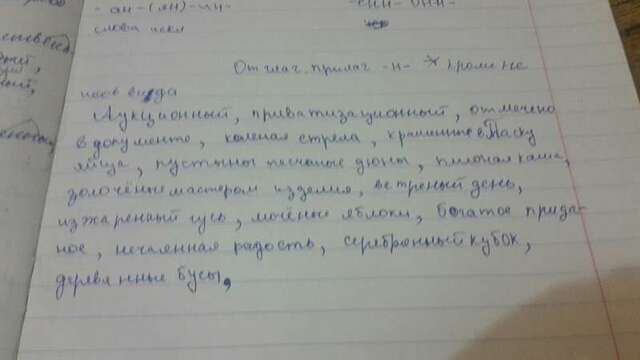 - ан - (ян) - ин -
- енн - онн -
слова искл
Отглаг. прилаг -н- кроме не
нсов вида
Аукционный, приватизационный, отмечено
в документе, каленая стрела, крашенные в Пасху
яйца, пустыны песчаные дюны, пшоная каша,
золочёные мастером изделия, ветреный день,
изжаренный гусь, мочёные яблоки, богатое прида-
ное, нечаянная радость, серебрянный кубок,
деревянные бусы,